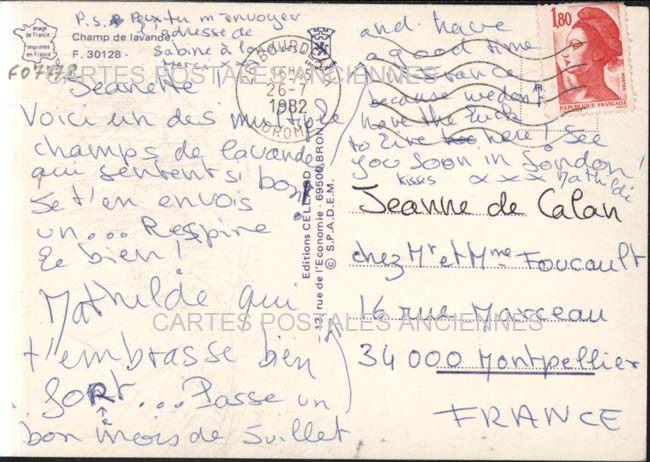 P.s. Peux tu m'envoyer
l'adresse de
Sabine à
Merci xx
Image de France
Imprimée en France
Champ de lavande
F. 30128 -
CARTES POSTALES ANCIENNES
Jeanette
Voici un des multiple
champs de lavande
qui sentent si bon.
Je t'en envois
un... Respire
le bien!
Mathilde qui
t'embrasse bien
fort... Passe un
bon mois de Juillet
and have
a good time
in France
because we don't
have the luck
to live here! See
you soon in London!
kisses xxx Mathilde
BOURD
26-7
1982
DROME
Editions CELLARD
- 131 rue de l'Economie - 69500 BRON -
© S.P.A.D.E.M.
1,80
REPUBLIQUE FRANCAISE
POSTES
Jeanne de Calan
chez Mr et Mme Foucault
16 rue Marceau
CARTES POSTALES ANCIENNES
34000 Montpellier
FRANCE